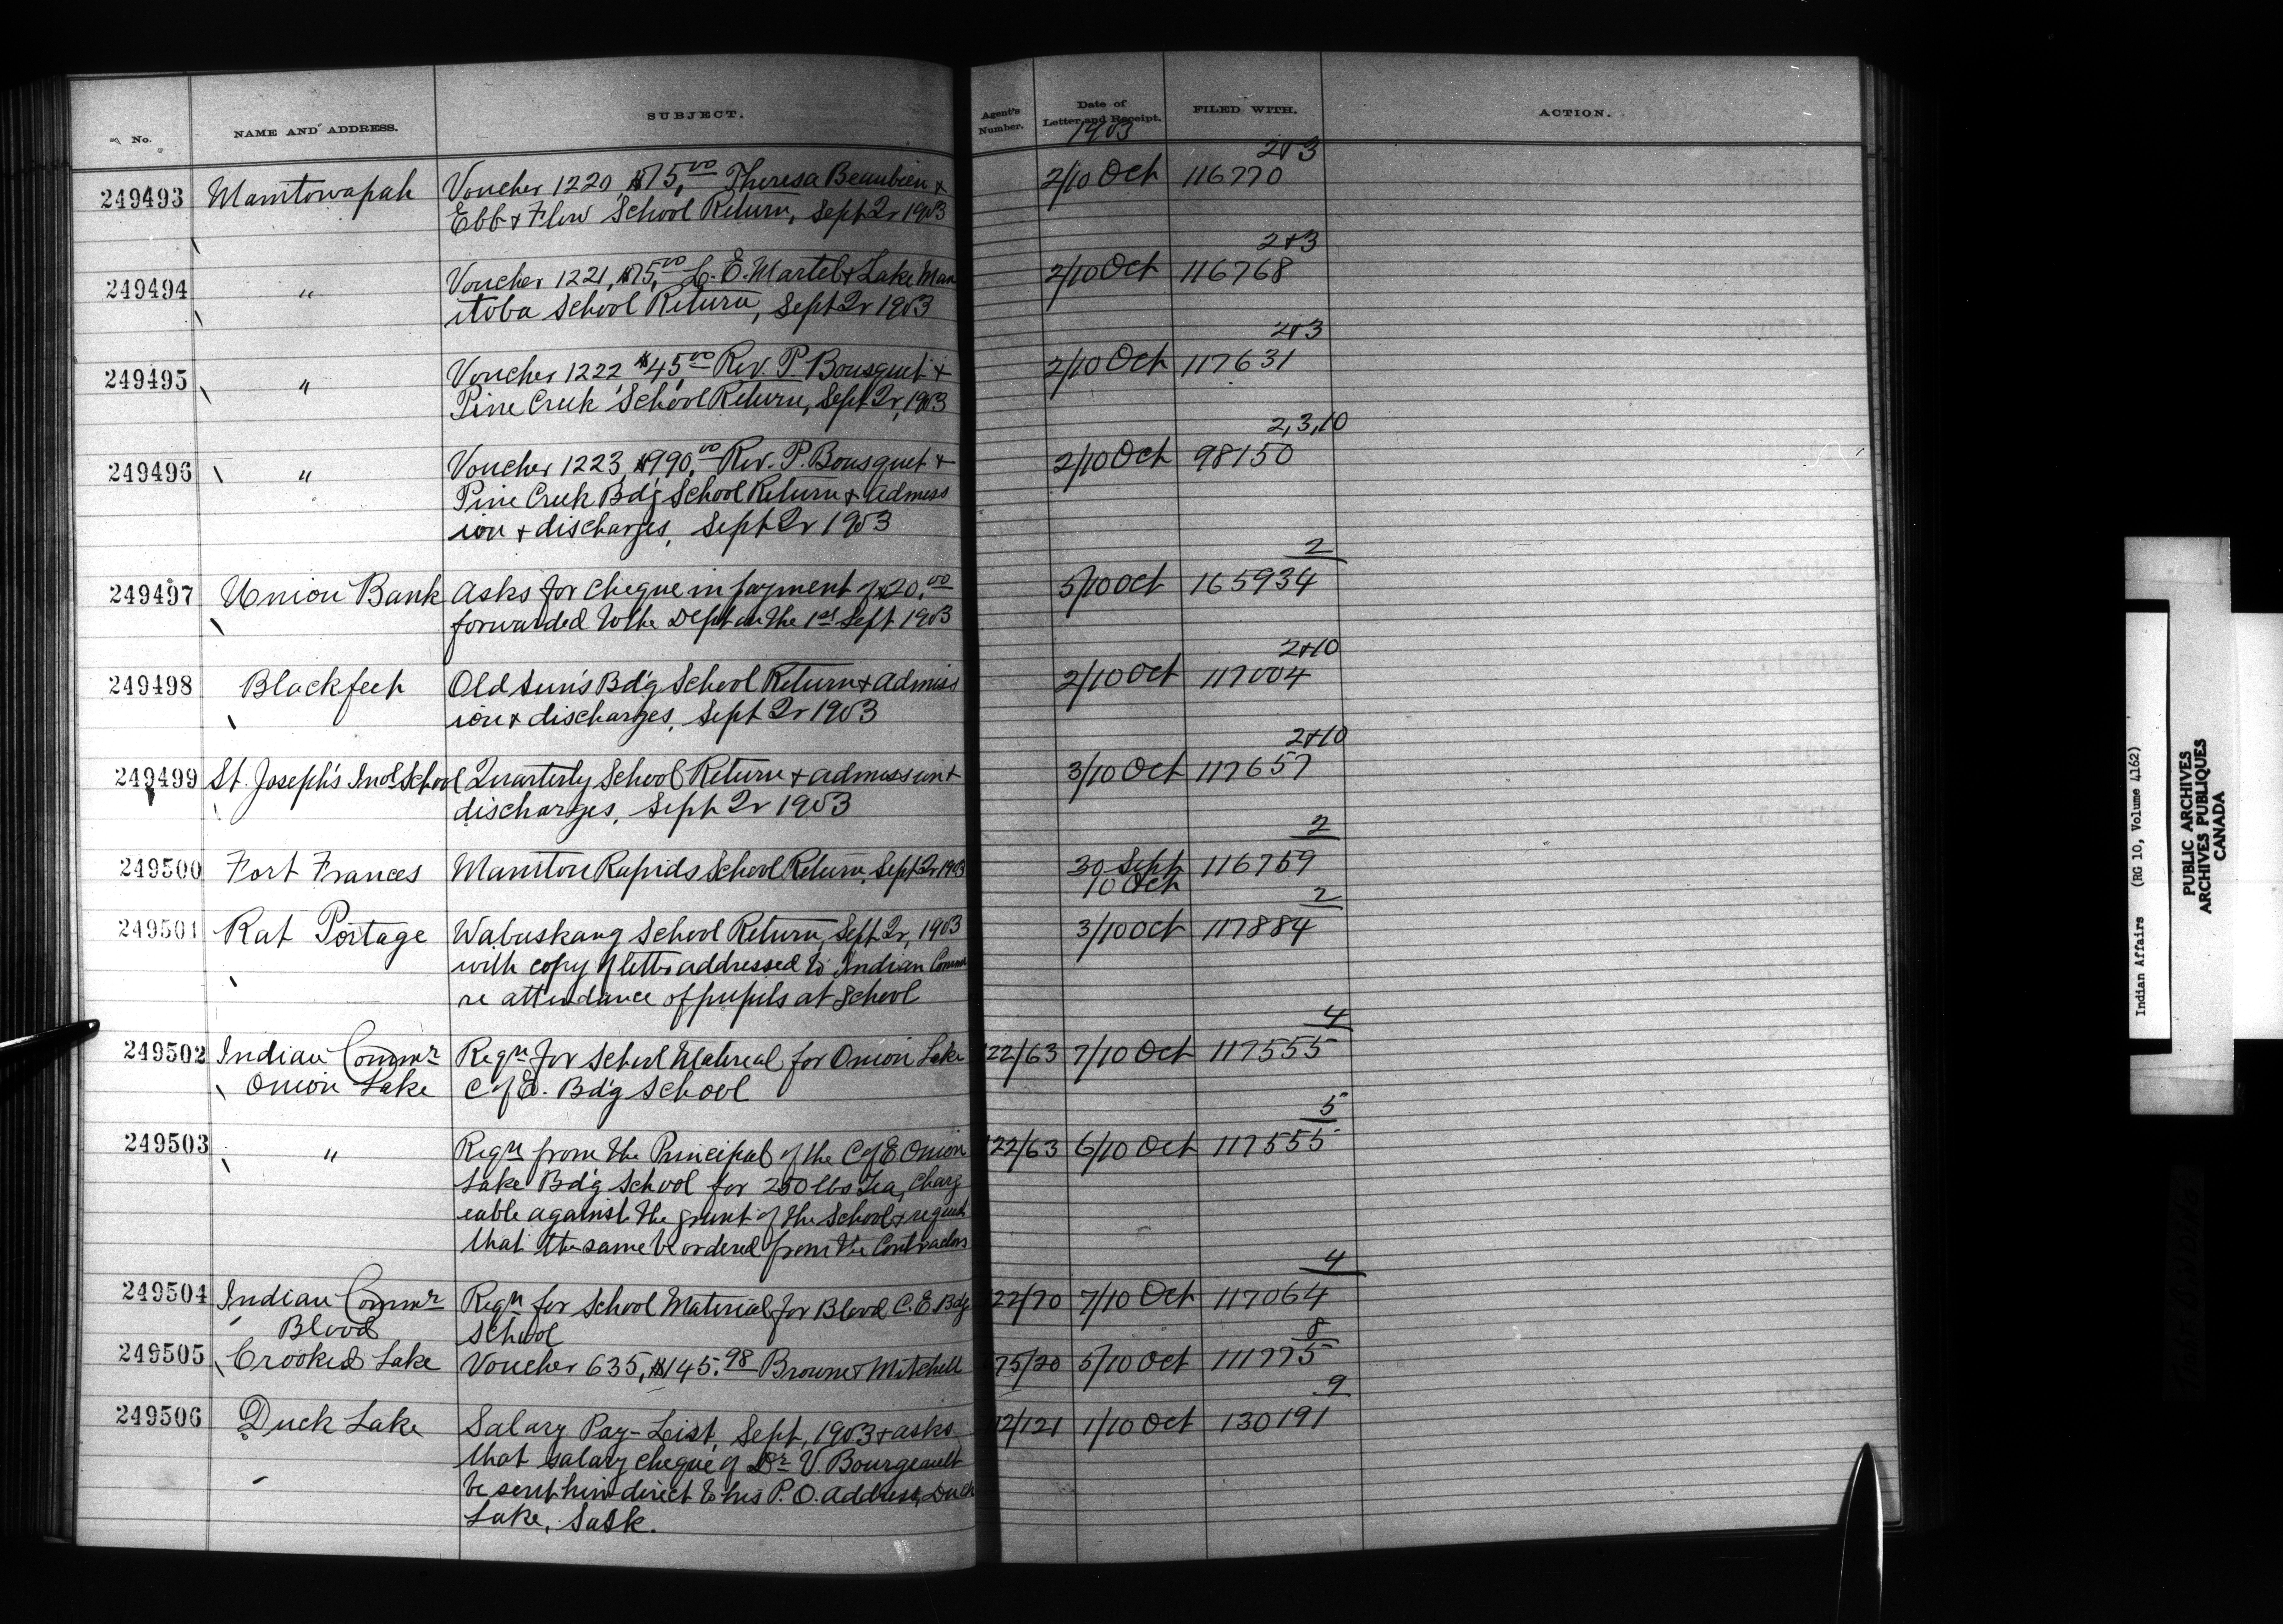 No.
NAME AND ADDRESS.
SUBJECT.
Agent's Number.
Date of Letter and Receipt.
FILED WITH.
ACTION.
1903
2+3
249493 Manitowapah Voucher 1220 $75.00 Theresa Beaubien + 2/10 Oct 116770
Ebb + Flow School Return, Sept Qr 1903
2+3
249494 " Voucher 1221, $75.00 L. E. Martel + Lake Man 2/10 Oct 116768
itoba School Return, Sept Qr 1903
2+3
249495 " Voucher 1222 $45.00 Rev. P. Bousquet + 2/10 Oct 117631
Pine Creek School Return, Sept Qr, 1903
2,3,10
249496 " Voucher 1223, $990.00 Rev. P. Bousquet + 2/10 Oct 98150
Pine Creek Bd'g School Return + admiss
ion + discharges, Sept Qr 1903
2
249497 Union Bank Asks for cheque in payment of $20.00 5/10 Oct 165934
forwarded to the Dept on the 1st Sept 1903
2+10
249498 Blackfeet Old Sun's Bd'g School Return + admiss 2/10 Oct 117004
ion + discharges, Sept Qr 1903
2+10
249499 St. Joseph's Ind School Quarterly School Return + admission + 3/10 Oct 117657
discharges, Sept Qr 1903
2
249500 Fort Frances Manitou Rapids School Return, Sept Qr 1903 30 Sept 116759
10 Oct
2
249501 Rat Portage Wabuskang School Return, Sept Qr, 1903 3/10 Oct 117884
with copy of letter addressed to Indian Commr
re attendance of pupils at school
4
249502 Indian Commr Reqn for School Material for Onion Lake 22/63 7/10 Oct 117555
Onion Lake C of E. Bd'g School
5
249503 " Reqn from the Principal of the C of E Onion 22/63 6/10 Oct 117555
Lake Bd'g School for 250 lbs Tea, Charg
eable against the grant of the School + request
that the same be ordered from the Contractors
4
249504 Indian Commr Reqn for School Material for Blood C. E. Bdg 22/70 7/10 Oct 117064
Blood School
8
249505 Crooked Lake Voucher 635, $145.98 Browne + Mitchell 75/20 5/10 Oct 111775
9
249506 Duck Lake Salary Pay-List, Sept, 1903 + asks 12/121 1/10 Oct 130191
that salary cheque of Dr V. Bourgeault
be sent him direct to his P. O. address, Duck
Lake, Sask.
Indian Affairs (RG 10, Volume 4162)
PUBLIC ARCHIVES
ARCHIVES PUBLIQUES
CANADA